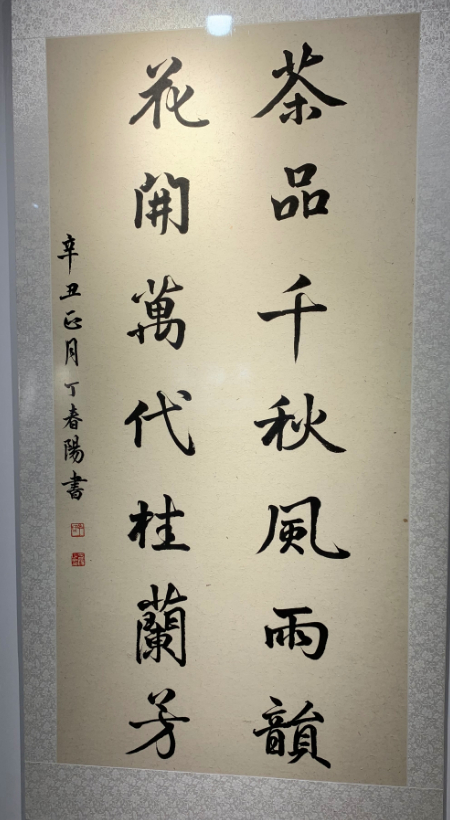 茶品千秋風雨韻
花開萬代桂蘭芳
辛丑正月丁春陽書